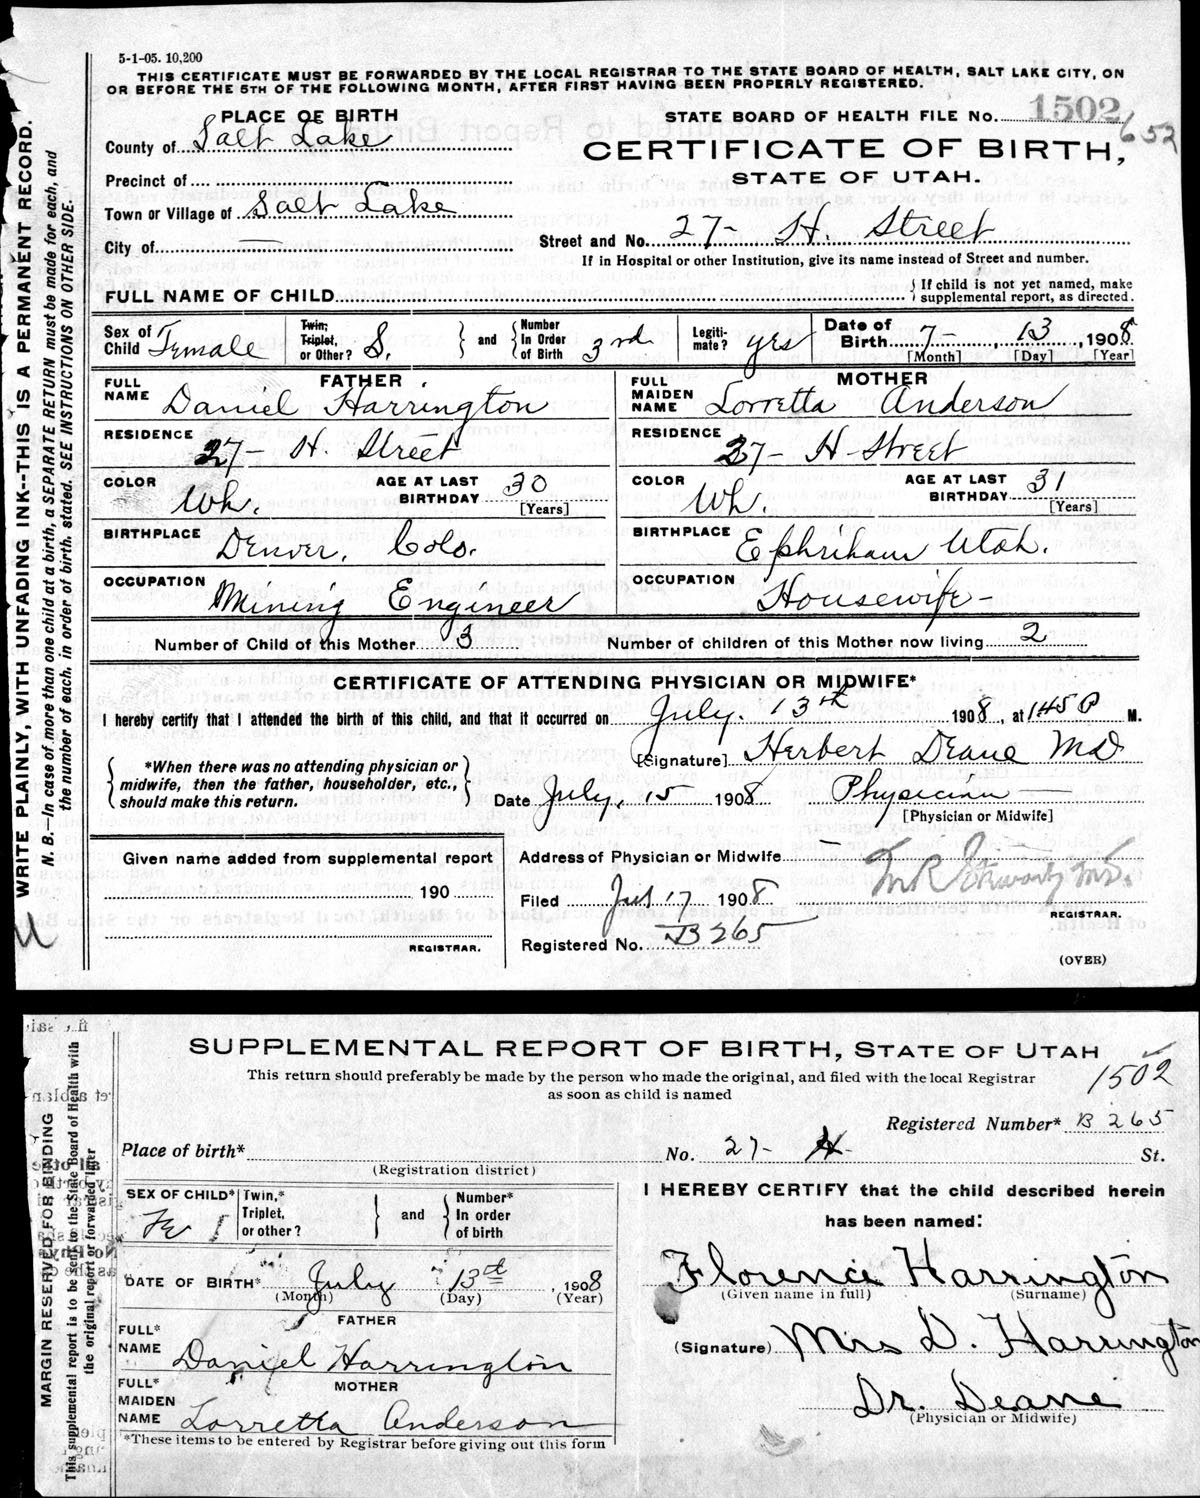 5-1-05. 10,200
THIS CERTIFICATE MUST BE FORWARDED BY THE LOCAL REGISTRAR TO THE STATE BOARD OF HEALTH, SALT LAKE CITY, ON
OR BEFORE THE 5TH OF THE FOLLOWING MONTH, AFTER FIRST HAVING BEEN PROPERLY REGISTERED.
PLACE OF BIRTH
County of Salt Lake
Precinct of
Town or Village of Salt Lake
City of —
STATE BOARD OF HEALTH FILE No. 1502
652
CERTIFICATE OF BIRTH,
STATE OF UTAH.
Street and No. 27- H. Street
If in Hospital or other Institution, give its name instead of Street and number.
FULL NAME OF CHILD
If child is not yet named, make
supplemental report, as directed.
Sex of Child Female
Twin, Triplet, or Other? S.
and
Number In Order of Birth 3rd
Legiti-mate? yes
Date of Birth 7- 13 1908
[Month] [Day] [Year]
FATHER
FULL NAME Daniel Harrington
RESIDENCE 27- H. Street
COLOR Wh.
AGE AT LAST BIRTHDAY 30
[Years]
BIRTHPLACE Denver, Colo.
OCCUPATION Mining Engineer
MOTHER
FULL MAIDEN NAME Lorretta Anderson
RESIDENCE 27- H Street
COLOR Wh.
AGE AT LAST BIRTHDAY 31
[Years]
BIRTHPLACE Ephriham Utah.
OCCUPATION Housewife-
Number of Child of this Mother 3
Number of children of this Mother now living 2
CERTIFICATE OF ATTENDING PHYSICIAN OR MIDWIFE*
I hereby certify that I attended the birth of this child, and that it occurred on July. 13th 1908, at 145 P M.
*When there was no attending physician or
midwife, then the father, householder, etc.,
should make this return.
[Signature] Herbert Deane MD
Date July, 15 1908 Physician —
[Physician or Midwife]
Given name added from supplemental report
190
REGISTRAR.
Address of Physician or Midwife
Filed 17 1908
REGISTRAR.
Registered No. B 265
(OVER)
WRITE PLAINLY, WITH UNFADING INK--THIS IS A PERMANENT RECORD.
N. B.—In case of more than one child at a birth, a SEPARATE RETURN must be made for each, and
the number of each, in order of birth, stated. SEE INSTRUCTIONS ON OTHER SIDE.
SUPPLEMENTAL REPORT OF BIRTH, STATE OF UTAH
This return should preferably be made by the person who made the original, and filed with the local Registrar
as soon as child is named
1502
Registered Number* B 265
Place of birth* No. 27- H St.
(Registration district)
SEX OF CHILD* Fe
Twin,* Triplet, or other?
and
Number* In order of birth
DATE OF BIRTH* July 13th, 1908
(Month) (Day) (Year)
FATHER
FULL* NAME Daniel Harrington
MOTHER
FULL* MAIDEN NAME Lorretta Anderson
*These items to be entered by Registrar before giving out this form
I HEREBY CERTIFY that the child described herein
has been named:
Florence Harrington
(Given name in full) (Surname)
(Signature) Mrs D. Harrington
Dr. Deane
(Physician or Midwife)
MARGIN RESERVED FOR BINDING
This supplemental report is to be sent to the State Board of Health with
the original report or forwarded later